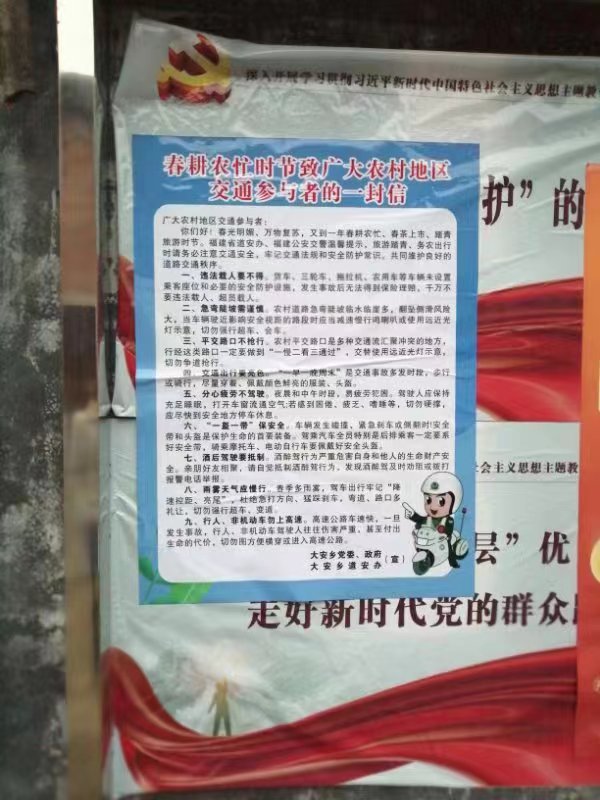 深入开展学习贯彻习近平新时代中国特色社会主义思想主题教
春耕农忙时节致广大农村地区
交通参与者的一封信
广大农村地区交通参与者：
你们好！春光明媚、万物复苏，又到一年春耕农忙、春茶上市、踏青
旅游时节。福建省道安办、福建公安交警温馨提示，旅游踏青、务农出行
时请务必注意交通安全，牢记交通法规和安全防护常识。共同维护良好的
道路交通秩序。
一、违法载人要不得。货车、三轮车、拖拉机、农用车等车辆未设置
乘客座位和必要的安全防护设施，发生事故后无法得到保险理赔，千万不
要违法载人、超员载人。
二、急弯陡坡需谨慎。农村道路急弯陡坡临水临崖多，翻坠侧滑风险
大，当车辆驶近影响安全视距的路段时应当减速慢行鸣喇叭或使用远近光
灯示意，切勿强行超车、会车。
三、平交路口不抢行。农村平交路口是多种交通流汇聚冲突的地方，
行经这类路口一定要做到“一慢二看三通过”，交替使用远近光灯示意，
切勿争道抢行。
四、交通出行要亮色。“一早一晚周末”是交通事故多发时段，步行
或骑行，尽量穿着、佩戴颜色鲜亮的服装、头盔。
五、分心疲劳不驾驶。夜晨和中午时段，易疲劳犯困。驾驶人应保持
充足睡眠，打开车窗流通空气；若感到困倦、疲乏、嗜睡等，切勿硬撑，
应尽快到安全地方停车休息。
六、“一盔一带”保安全。车辆发生碰撞、紧急刹车或侧翻时！安全
带和头盔是保护生命的首要装备。驾乘汽车全员特别是后排乘客一定要系
好安全带，骑乘摩托车、电动自行车要佩戴好安全头盔。
七、酒后驾驶要抵制。酒醉驾行为严重危害自身和他人的生命财产安
全。亲朋好友相聚，请自觉抵制酒醉驾行为，发现酒醉驾及时劝阻或拨打
报警电话举报。
八、雨雾天气应慢行。春季多雨雾，驾车出行牢记“降
速控距、亮尾”，杜绝急打方向、猛踩刹车，弯道、路口多
礼让，切勿强行超车、变道。
九、行人、非机动车勿上高速。高速公路车速快，一旦
发生事故，行人、非机动车驾驶人往往伤害严重、甚至付出
生命的代价，切勿图方便横穿或进入高速公路。
大安乡党委、政府
大安乡道安办
（宣）
护”的
社会主义思想主题教
层”优
走好新时代党的群众